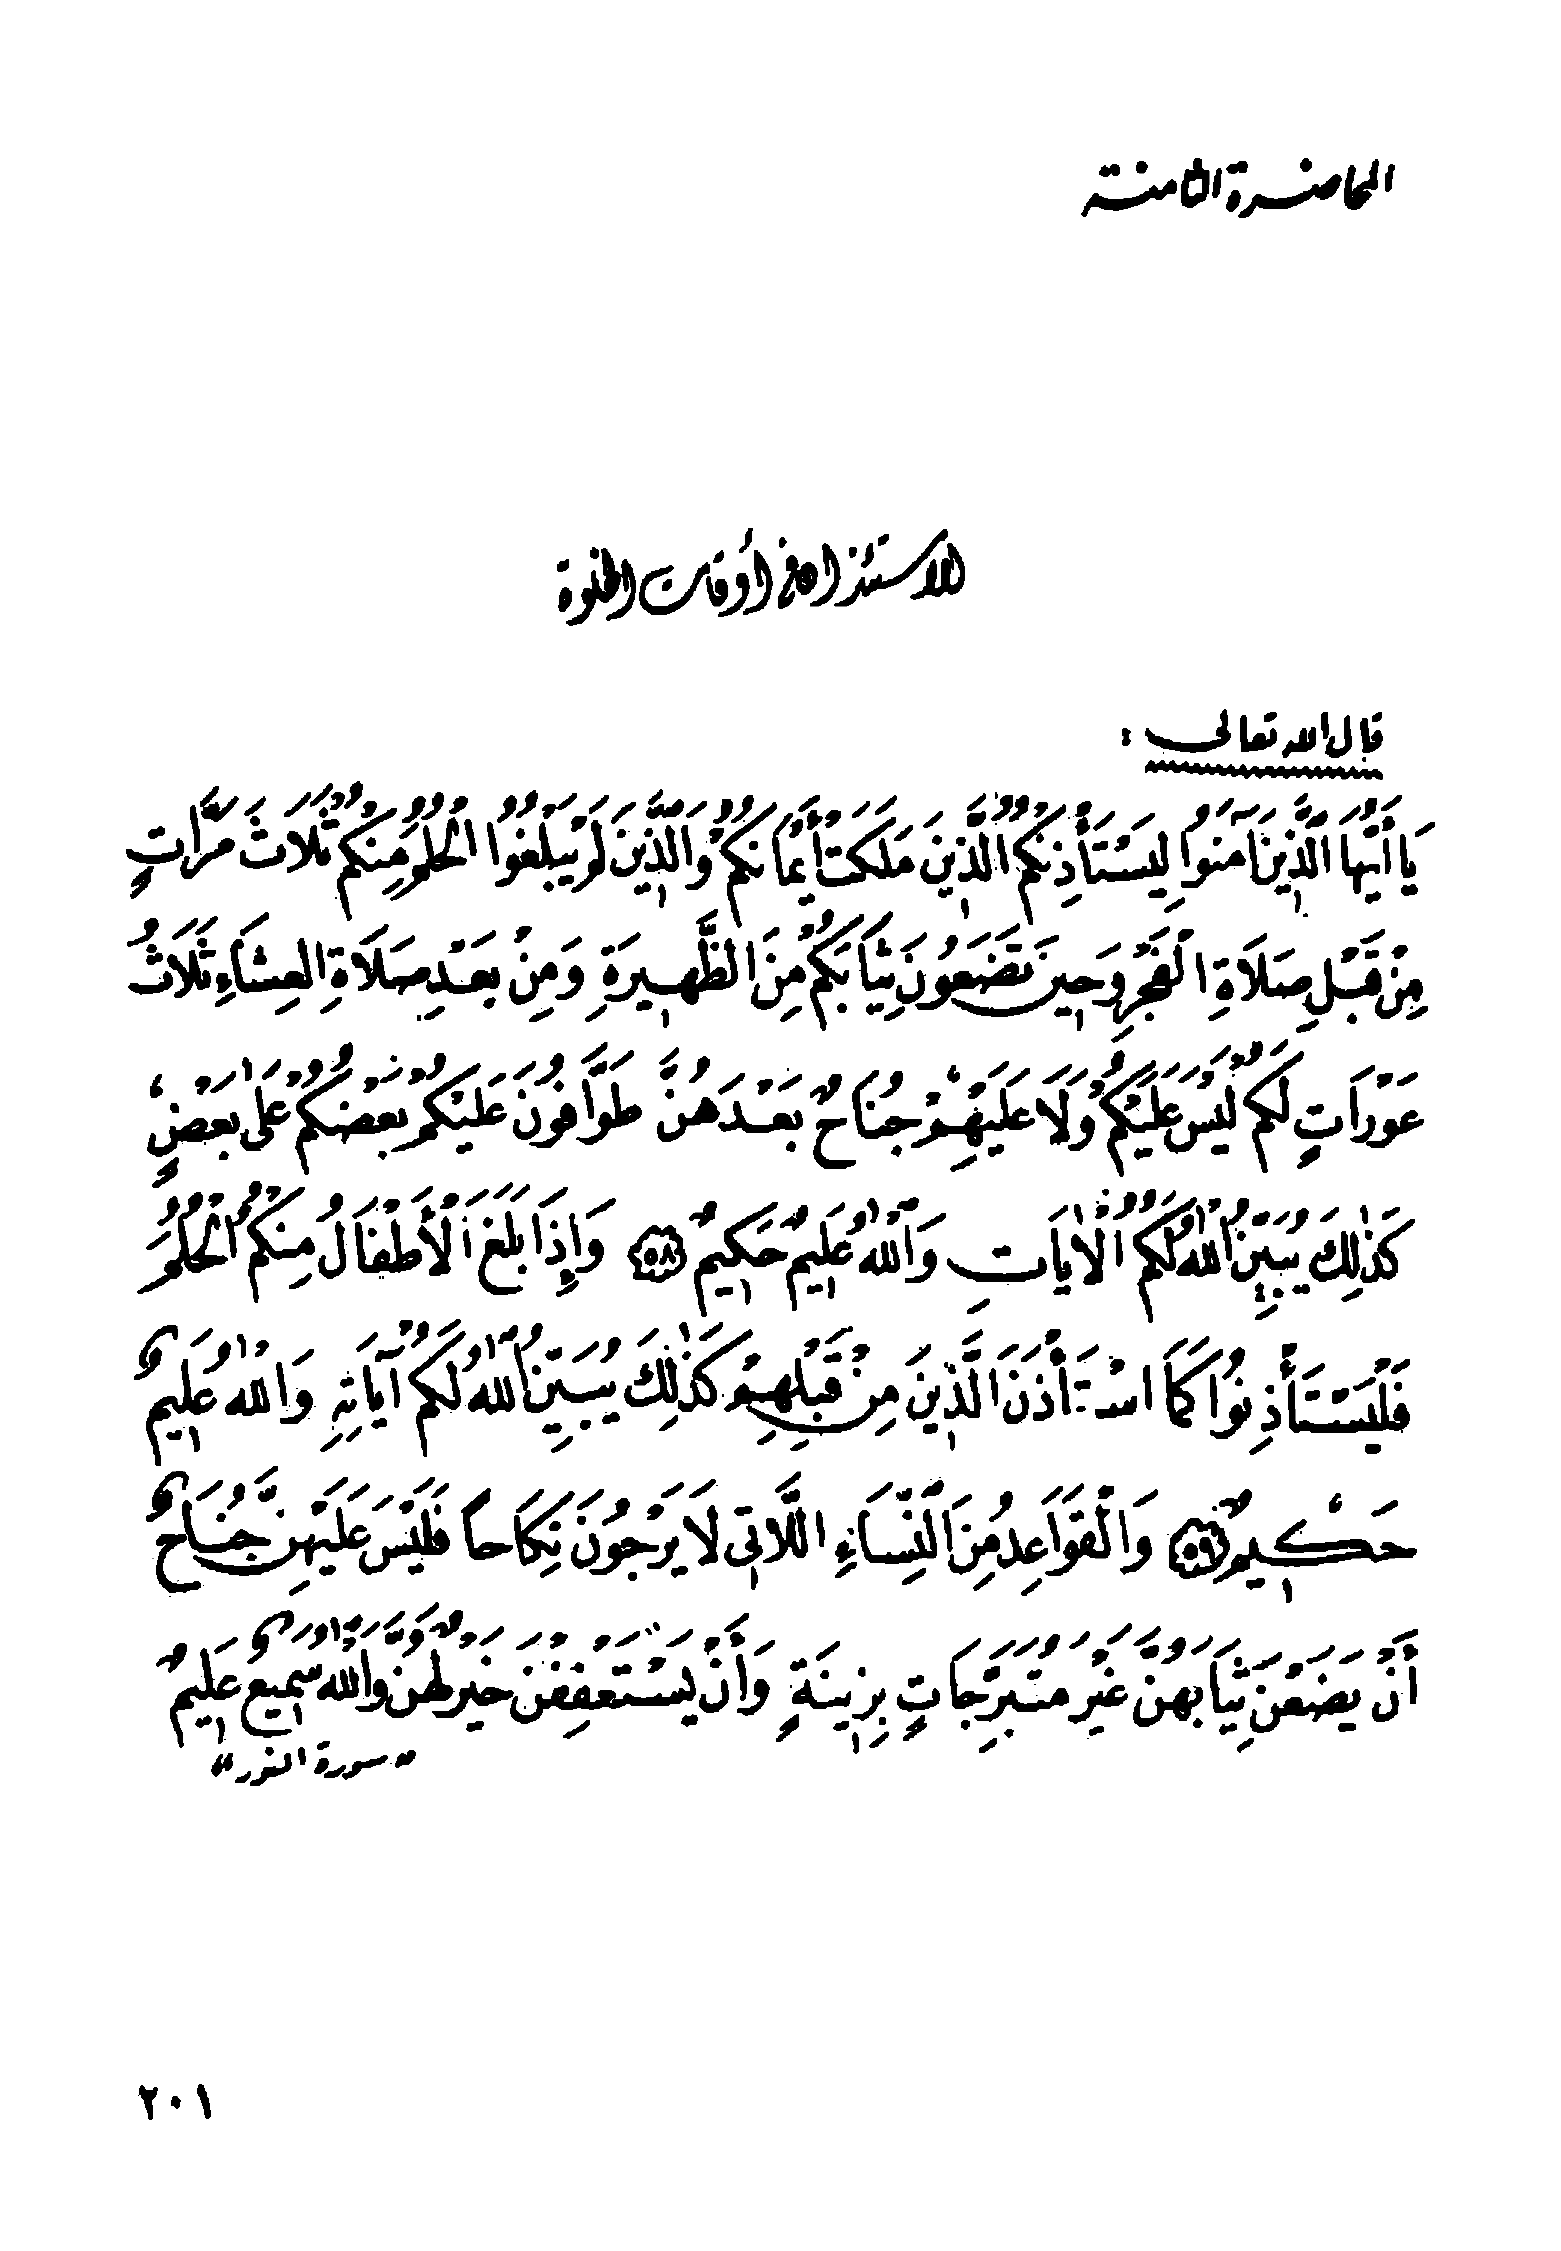 المحاضرة الثامنة
الاستئذان في أوقات الخلوة
قال الله تعالى :
يَا أَيُّهَا الَّذِينَ آمَنُوا لِيَسْتَأْذِنكُمُ الَّذِينَ مَلَكَتْ أَيْمَانُكُمْ وَالَّذِينَ لَمْ يَبْلُغُوا الْحُلُمَ مِنكُمْ ثَلَاثَ مَرَّاتٍ
مِنْ قَبْلِ صَلَاةِ الْفَجْرِ وَحِينَ تَضَعُونَ ثِيَابَكُمْ مِنَ الظَّهِيرَةِ وَمِنْ بَعْدِ صَلَاةِ العِشَاءِ ثَلَاثُ
عَوْرَاتٍ لَكُمْ لَيْسَ عَلَيْكُمْ وَلَا عَلَيْهِمْ جُنَاحٌ بَعْدَهُنَّ طَوَّافُونَ عَلَيْكُمْ بَعْضُكُمْ عَلَىٰ بَعْضٍ
كَذَٰلِكَ يُبَيِّنُ اللَّهُ لَكُمُ الْآيَاتِ وَاللَّهُ عَلِيمٌ حَكِيمٌ ٥٨ وَإِذَا بَلَغَ الْأَطْفَالُ مِنكُمُ الْحُلُمَ
فَلْيَسْتَأْذِنُوا كَمَا اسْتَأْذَنَ الَّذِينَ مِنْ قَبْلِهِمْ كَذَٰلِكَ يُبَيِّنُ اللَّهُ لَكُمْ آيَاتِهِ وَاللَّهُ عَلِيمٌ
حَكِيمٌ ٥٩ وَالْقَوَاعِدُ مِنَ النِّسَاءِ اللَّاتِي لَا يَرْجُونَ نِكَاحاً فَلَيْسَ عَلَيْهِنَّ جُنَاحٌ
أَنْ يَضَعْنَ ثِيَابَهُنَّ غَيْرَ مُتَبَرِّجَاتٍ بِزِينَةٍ وَأَنْ يَسْتَعْفِفْنَ خَيْرٌ لَهُنَّ وَاللَّهُ سَمِيعٌ عَلِيمٌ
"سورة النور"
٢٠١